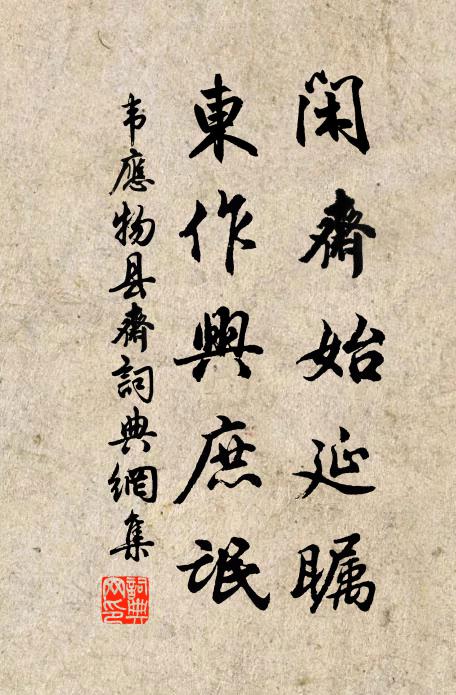 闲斋始延瞩
東作興庶氓
韦應物县斋詞典網集
詞典网印